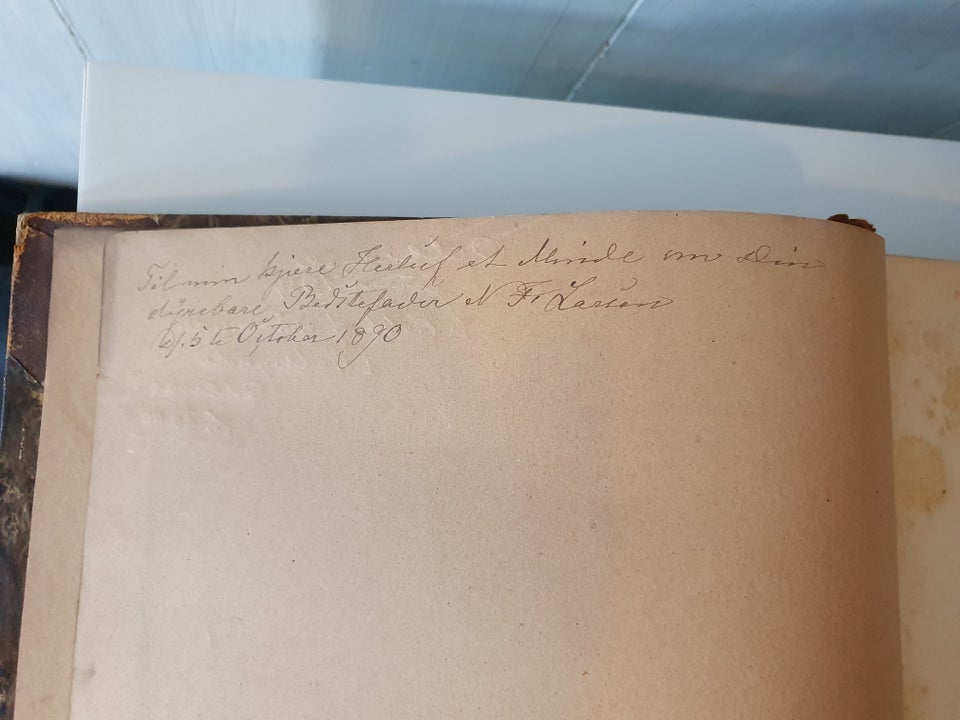 Til min kjære Herluf et Minde om Din
dÿrebare Bedstefader N F. Larsen
d. 5te October 1890